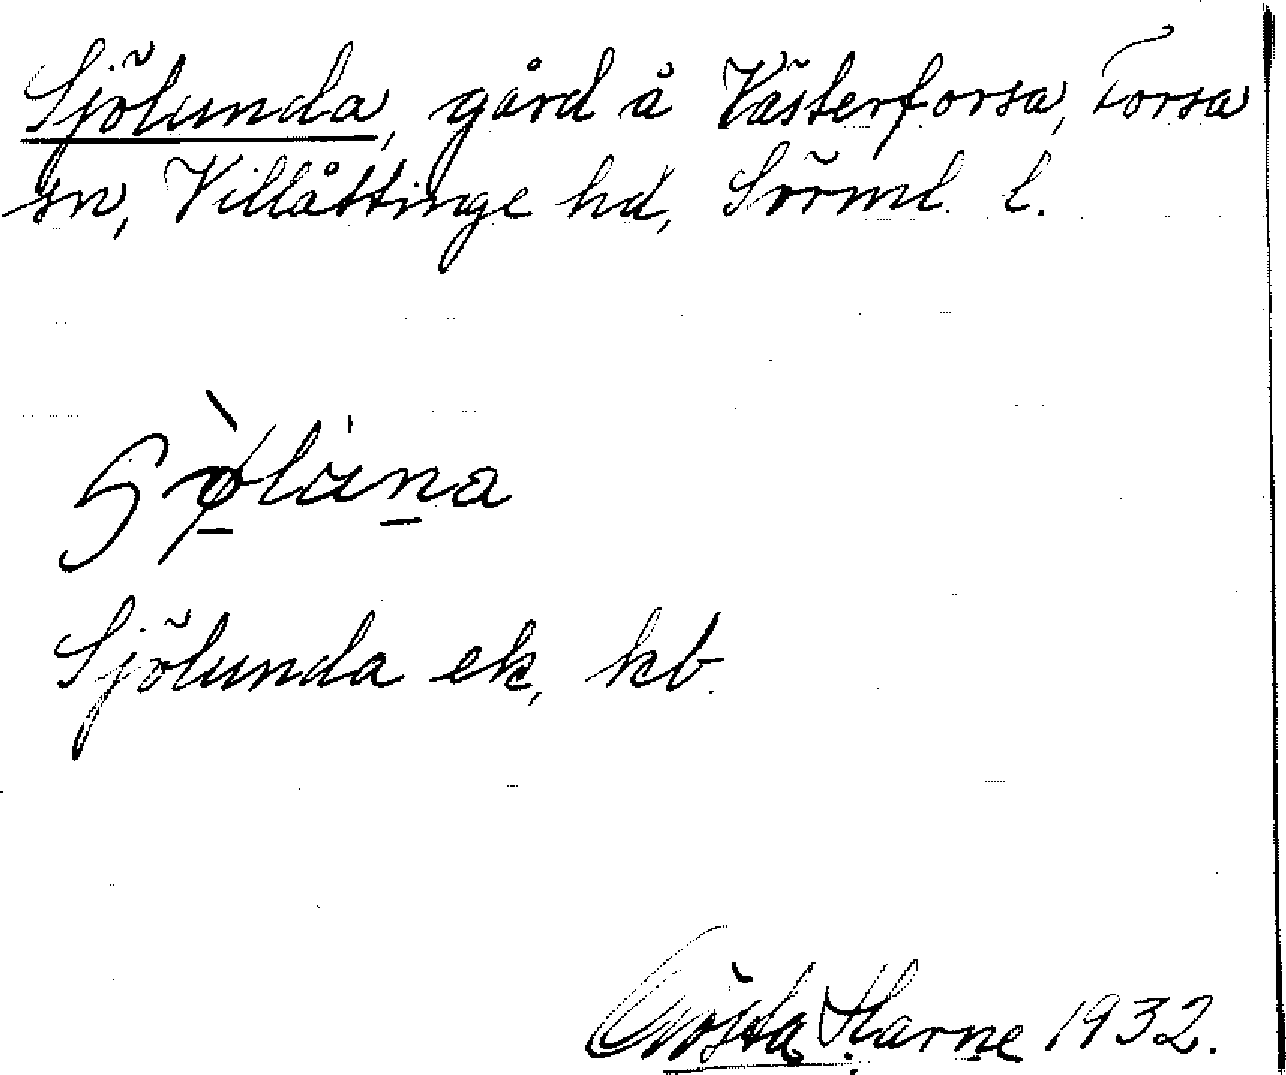 Sjölunda, gård å Västerforsa, Forsa
sn, Villåttinge hd, Sörml. l.
Sjölunda ek, kb.
Gösta Harne 1932.